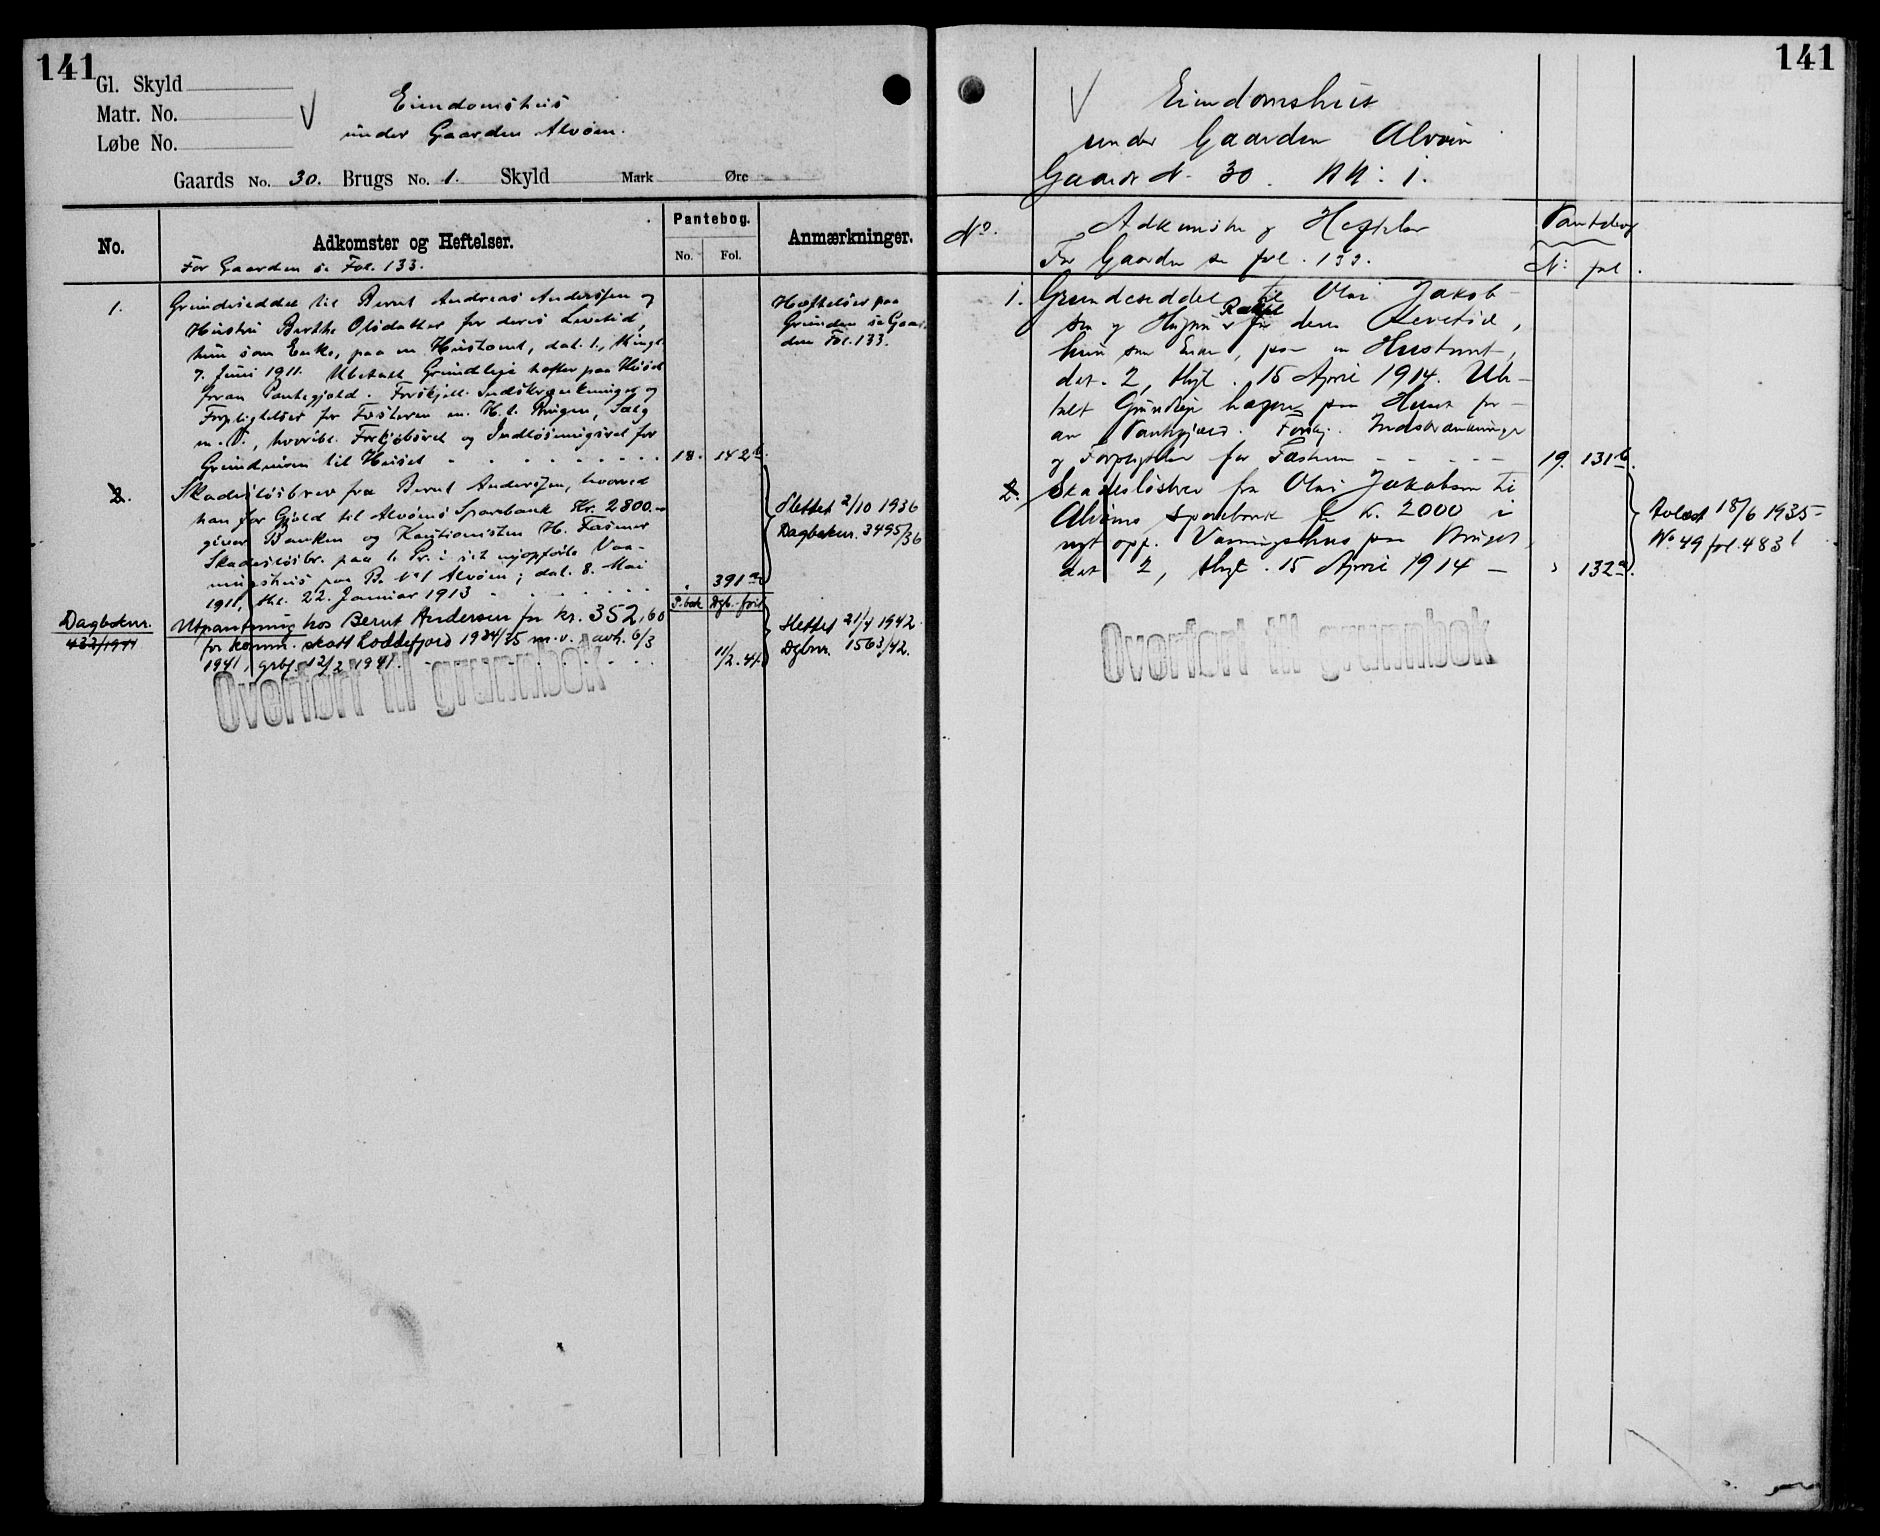 141
Gl. Skyld
Matr. No.
Løbe No.
Eiendomshus
under Gaarden Alvøen.
Gaards No. 30. Brugs No. 1. Skyld Mark Øre
No.
Adkomster og Heftelser.
Pantebog.
No. Fol.
Anmærkninger.
For Gaarden se Fol. 133.
1. Grundseddel til Bernt Andreas Anderssen og
Hustru Berthe Olsdatter for deres Levetid,
hun som Enke, paa en Hustomt, dat. 1., thingl.
7. Juni 1911. Ubetalt Grundleje hefter paa Huset
foran Pantegjeld. Forskjell. Indskrænkninger og
Forpligtelser for Fæsteren m. H. t. Brugen, Salg
m. V., hvoribl. Forkjøbsret og Indløsningsret for
Grundeieren til Huset 18. 142b.
Hæftelser paa
Grunden se Gaar-
den Fol. 133.
2. Skadesløsbrev fra Bernt Anderssen, hvorved
han for Gjeld til Alvøens Sparebank Kr. 2800.-
giver Banken og Kautionisten H. Fasmer
Skadesløsbr. paa 1. Pr. i sit nyopførte Vaa-
ningshus paa B. No 1 Alvøen; dat. 8. Mai
1911, thl. 22. Januar 1913 " 391a
Slettet 2/10 1936
Dagboknr. 3495/36
P.bok Dgb.-ført
Dagboknr.
433/1941
Utpantning hos Bernt Andersen for kr. 352,60
for komm. skatt Loddefjord 1934/35 m.v. avh. 6/3
1941, grbf. 12/2 1941. 11/2.41
Slettet 21/4 1942.
Dgbnr. 1563/42.
Overført til grunnbok
141
Eiendomshus
under Gaarden Alvøen
Gaards N. 30. BN: 1.
No.
Adkomster og Heftelser
Pantebog
N: fol.
For Gaarden se fol. 133.
1. Grundseddel til Olai Jakob-
sen og Hustru Rakel for deres Levetid,
hun som Enke, paa en Hustomt,
dat. 2, thgl. 15 April 1914. Ube-
talt Grundleje hæfter paa Huset for-
an Pantegjæld. Forskj. Indskrænkninger
og Forpligtelser for Fæsteren 19. 131b.
2. Skadesløsbrev fra Olai Jakobsen til
Alvøens Sparebank for Kr. 2000 i
nyt opf. Vaaningshus paa Bruget,
dat 2, thgl. 15 April 1914 - " 132a.
Avlæst 18/6 1935-
No 49 fol. 483b
Overført til grunnbok